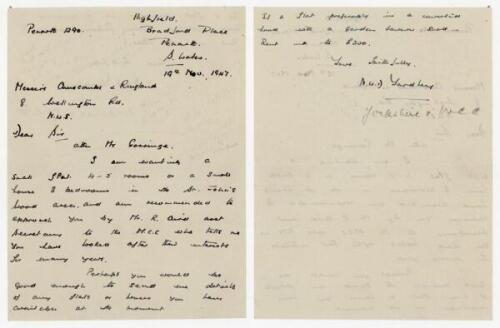 Highfield.
Penarth 1290.
Bradford Place
Penarth.
S. Wales.
19th Nov. 1947.
Messrs Anscombe & Ringland
8. Wellington Rd.
N.W.8.
Dear Sir
attn Mr Gossinge.
I am wanting a
small flat 4-5 rooms or a small
house 3 bedrooms in the St. John's
Wood area, and am recommended to
approach you by Mr. R. Aird asst
Secretary to the M.C.C who tells me
you have looked after their interests
for many years.
Perhaps you would be
good enough to send me details
of any flats or houses you have
available at the moment
If a flat preferably in a converted
house with a garden
Rent up to £300.
Yours faithfully.
N.W.D. Yardley
Yorkshire & M.C.C